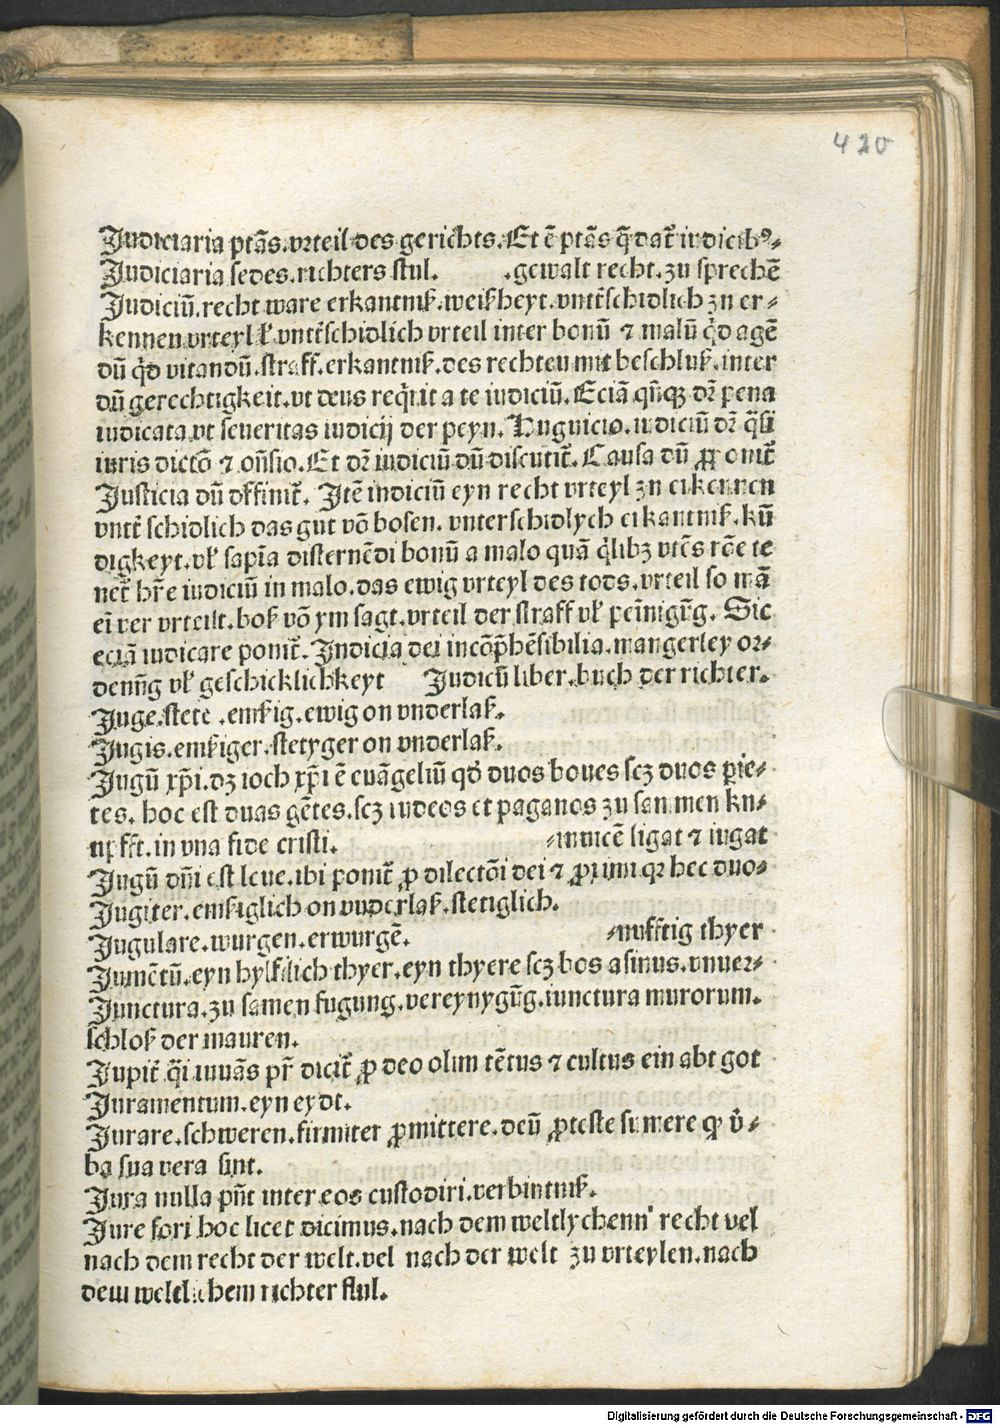 420
Judiciaria ptãs.vrteil des gerichts.Et ē ptãs q̄ dat̄ iudicib9⸗
Judiciaria sedes.richters stul. .gewalt recht.zu sprechē
Judiciū.recht ware erkantniß.weißheyt.vnt̄schidlich zu er⸗
kennen vrteyl vl̓ vnt̄schidlich vrteil inter bonū ⁊ malū qd̓ agē
dū qd̓ vitandū.straff.erkantniß.des rechten mit beschluß.inter
dū gerechtigkeit.vt deus reqͥrit a te iudiciū.Eciã qñqꝫ dr̄ pena
iudicata.vt seueritas iudicij der peyn. Huguicio.iudiciū dr̄ q̄si
iuris dictō ⁊ oñsio.Et dr̄ iudiciū dū discutit̄. Causa dū ꝓ omit̄
Justicia dū diffinit̄. Itē iudiciū eyn recht vrteyl zu erkennen
vnt̄ schidlich das gut vō bosen. vnterschidlych erkantniß.kū
digkeyt.vl̓ sapīa disternēdi bonū a malo quã qͥlibꝫ vtēs rōe te
net̄ hr̄e iudiciū in malo.das ewig vrteyl des tods.vrteil so mã
eī ver vrteilt.boß vō ym sagt.vrteil der straff vl̓ peīnigūg. Sic
eciã iudicare ponit̄.Judicia dei incōp̄hēsibilia.mangerley or⸗
denūg vl̓ geschicklichkeyt Judicū liber.buch der richter.
Juge.stete .emßig.ewig on vnderlaß.
Jugis.emßiger.stetyger on vnderlaß.
Jugū xp̄i.dz ioch xp̄i ē euãgeliū qd̓ duos boues scꝫ duos p̄ie⸗
tes. hoc est duas gētes.scꝫ iudeos et paganos zu sammen knu⸗
npfft.in vna fide cristi. ⸗inuicē ligat ⁊ iugat
Jugū dñi est leue.ibi ponit̄ ꝓ dilectōi dei ⁊ ꝓximi qꝛ hec duo⸗
Jugiter.emßiglich on vnderlaß.stetiglich.
Jugulare.wurgen.erwurgē. ⸗nufftig thyer
Jumētū.eyn hylflich thyer.eyn thyere scꝫ bos asinus.vnuer⸗
Junctura.zu samen fugung.vereynygūg.iunctura murorum.
schloß der mauren.
Jupit̄ q̄i iuuãs pr̄ dicit̄ ꝓ deo olim tētus ⁊ cultus ein abt got
Juramentum.eyn eydt.
Jurare.schweren.firmiter ꝓmittere.deū ꝓ teste sumere qꝫ v̓⸗
ba sua vera sint.
Jura nulla pñt inter eos custodiri.verbintniß.
Jure fori hoc licet dicimus.nach dem weltlychenn recht vel
nach dem recht der welt.vel nach der welt zu vrteylen.nach
dem weltlichem richter stul.
Digitalisierung gefördert durch die Deutsche Forschungsgemeinschaft - DFG